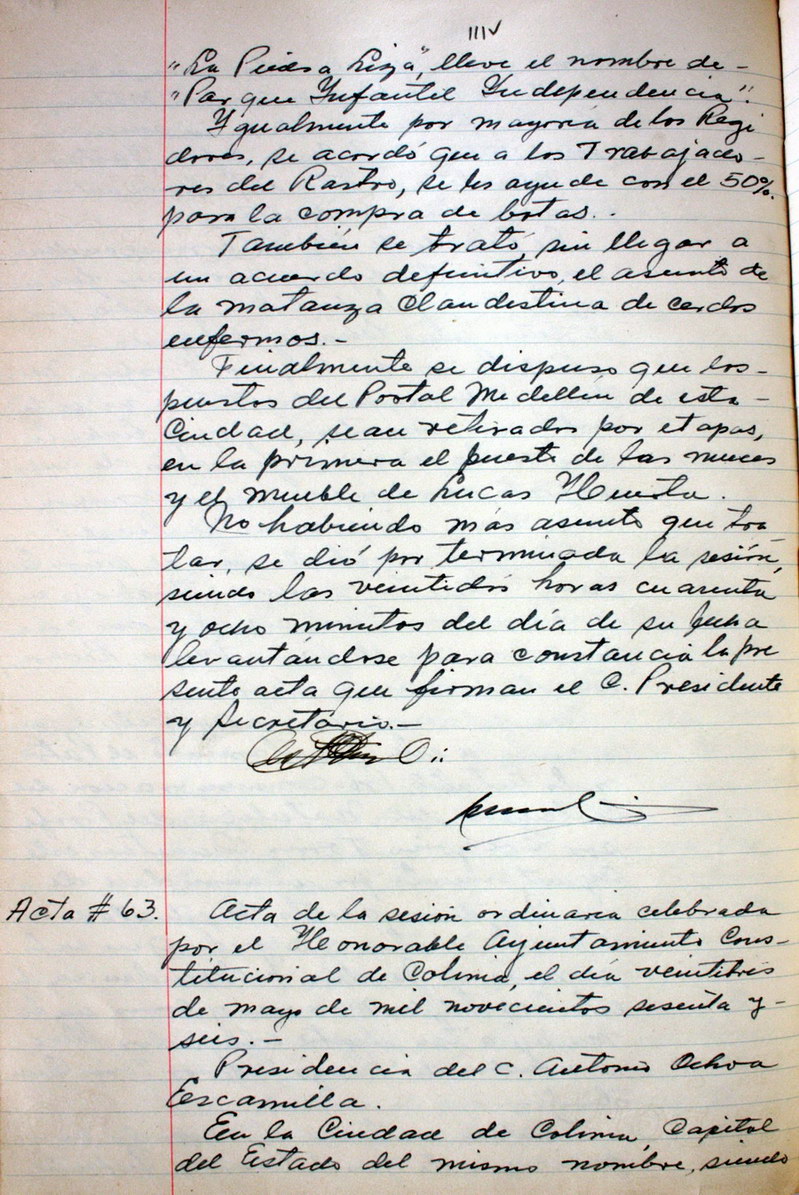 "La Piedra Liza", lleve el nombre de -
"Parque Infantil Independencia".
Ygualmente por mayoría de los Regi
dores, se acordó que a los Trabajado-
res del Rastro, se les ayude con el 50%.
para la compra de botas..
También se trató, sin llegar a
un acuerdo definitivo, el asunto de
la matanza clandestina de cerdos
enfermos.-
Finalmente se dispuso que los-
puestos del Portal Medellín de esta-
Ciudad, sean retirados por etapas,
en la primera el puesto de las nueces
y el mueble de Lucas Huerta.
No habiendo más asunto que tra
tar, se dió por terminada la sesión,
siendo las veintidós horas cuarenta
y ocho minutos del día de su fecha
levantándose para constancia la pre
sente acta que firman el C. Presidente
y Secretario.-
Acta # 63.
Acta de la sesión ordinaria celebrada
por el Honorable Ayuntamiento Cons-
titucional de Colima, el día veintitrés
de mayo de mil novecientos sesenta y-
seis.-
Presidencia del C. Antonio Ochoa
Escamilla.
En la Ciudad de Colima, Capital
del Estado del mismo nombre, siendo